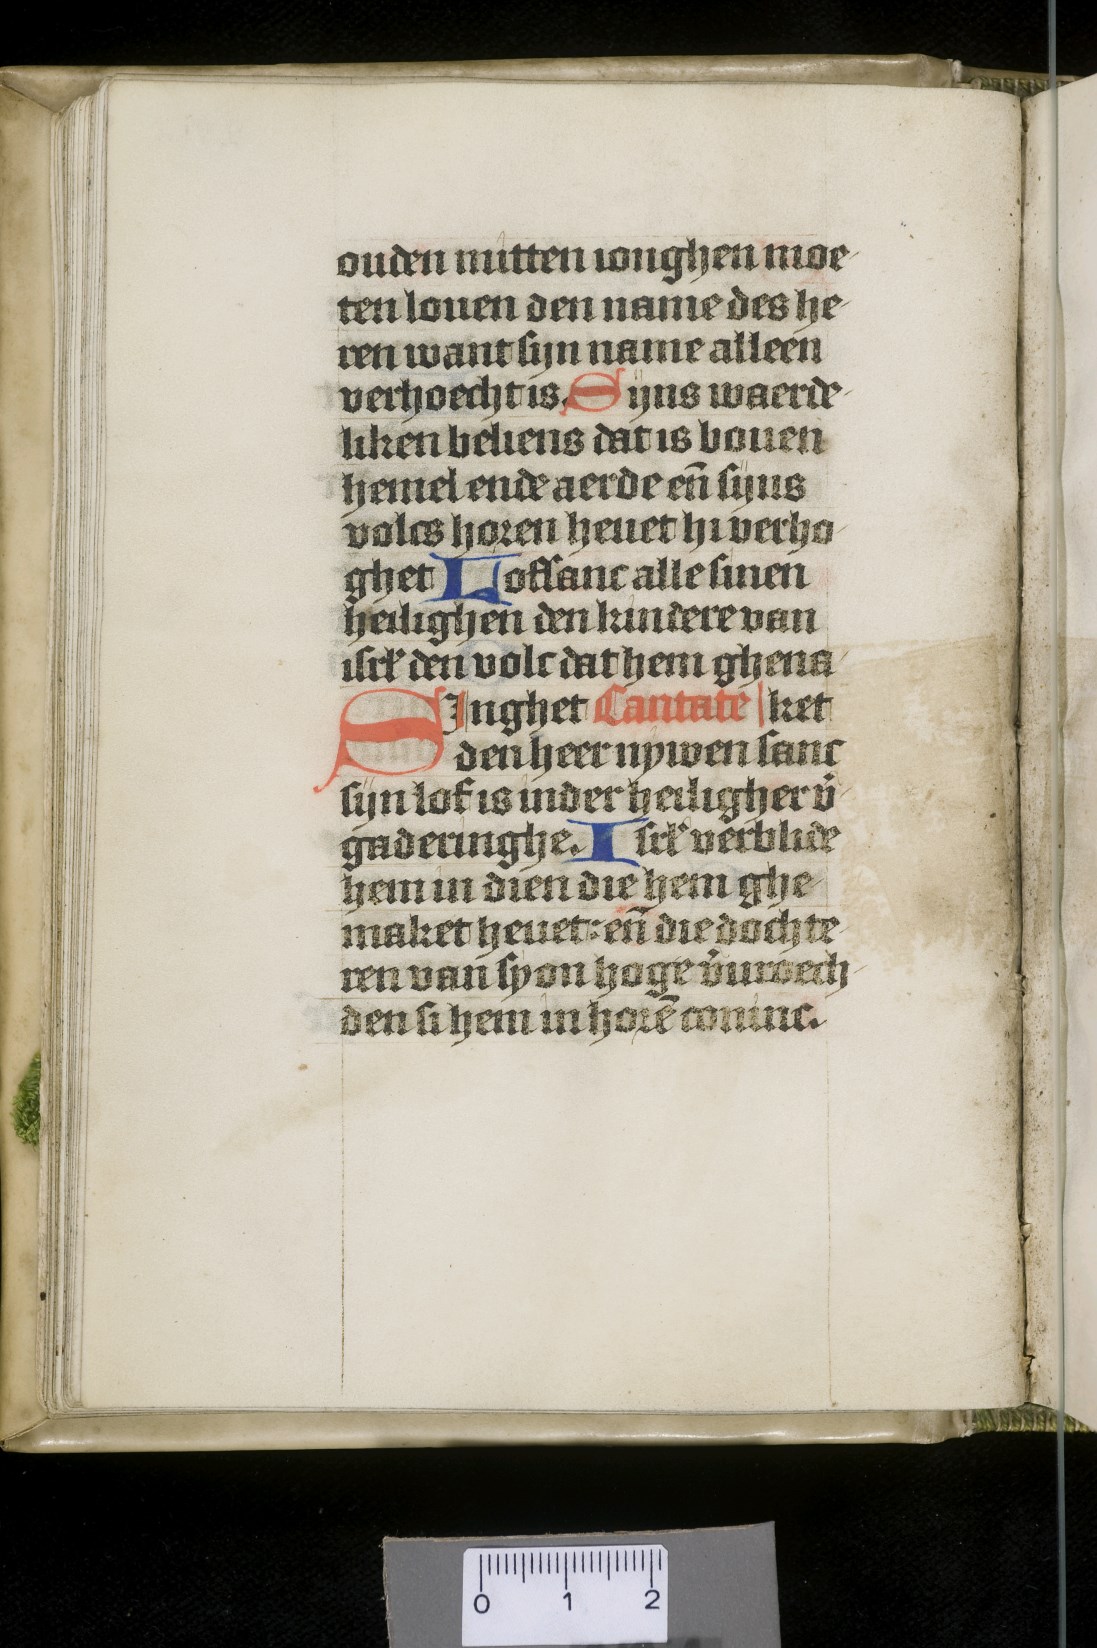 ouden mitten ionghen moe-
ten louen den name des he-
ren want sijn name alleen
verhoecht is. Sijns waerde-
liken beliens dat is bouen
hemel ende aerde eñ sijns
volcs horen heuet hi verho-
ghet Loffsanc alle sinen
heilighen den kindere van
isrl̄ den volc dat hem ghena-
SInghet Cantate | ket
den heer nywen sanc
sijn lof is in der heiligher v̄-
gaderinghe. Isrl̄ verblide
hem in dien die hem ghe-
maket heuet: eñ die dochte-
ren van syon hoge v̄uroech-
den si hem in horē coninc.
0 1 2